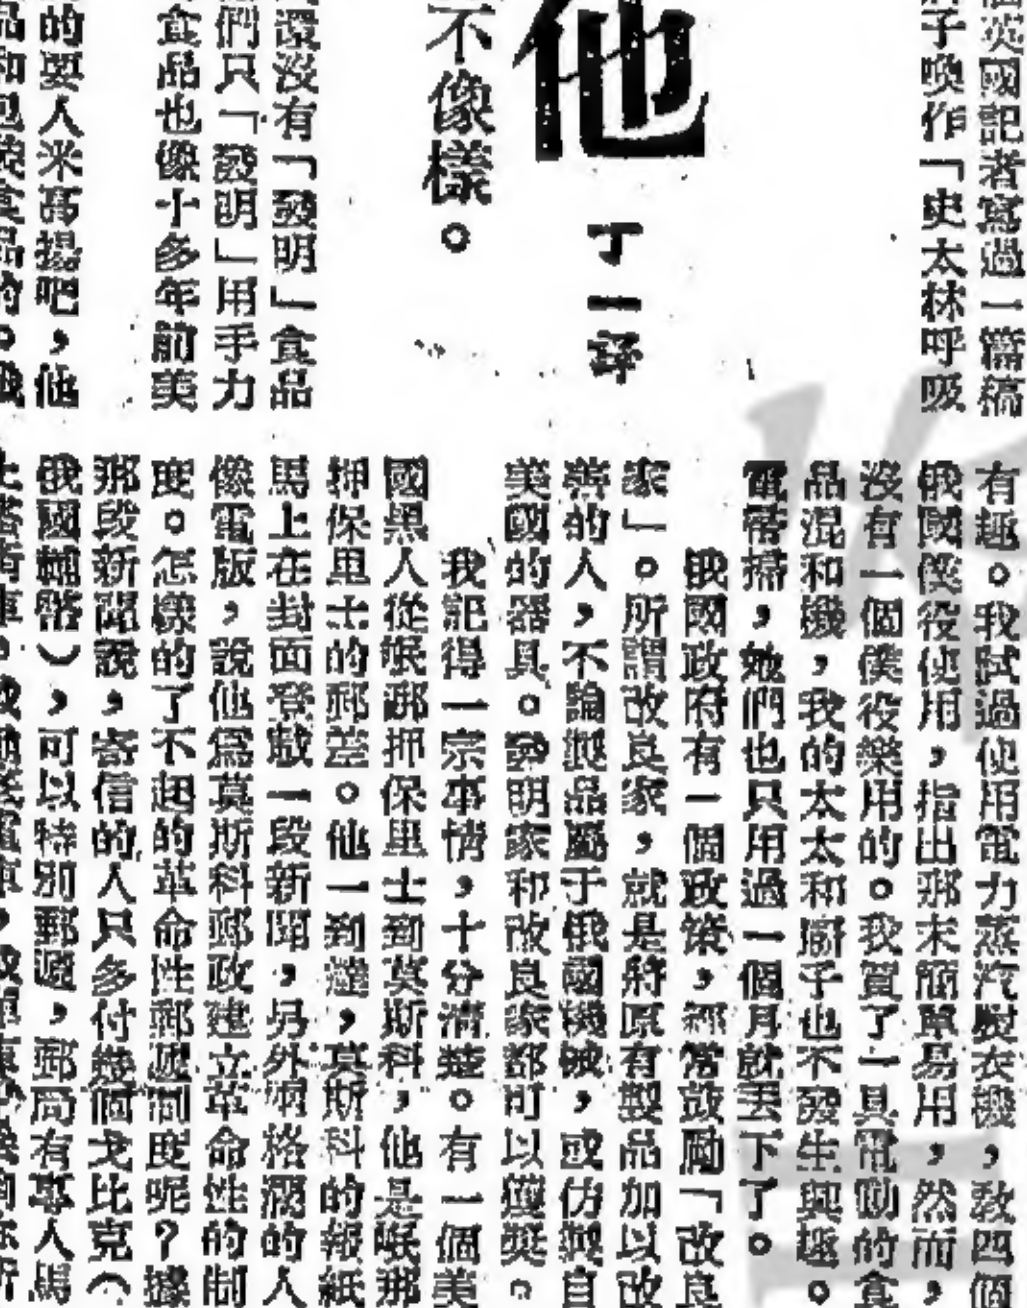 個英國記者寫過一篇稿
子喚作「史太林呼吸
他
丁一譯
不像樣。
還沒有「發明」食品
們只「發明」用手力
食品也像十多年前美
的要人米高揚吧,他
有趣。我試過使用電力蒸汽熨衣機,教四個
俄國僕役使用,指出那末簡單易用,然而,
沒有一個僕役樂用的。我買了一具電動的食
品混和機,我的太太和廚子也不發生興趣。
電帚掃,她們也只用過一個月就丟下了。
俄國政府有一個政策,經常鼓勵「改良
家」。所謂改良家,就是將原有製品加以改
善的人,不論製品屬于俄國機械,或仿製自
美國的器具。發明家和改良家都可以獲獎。
我記得一宗事情,十分清楚。有一個美
國黑人從岷那押保里士到莫斯科,他是岷那
押保里士的郵差。他一到達,莫斯科的報紙
馬上在封面登載一段新聞,另外嵌格濶的人
像電版,說他為莫斯科郵政建立革命性的制
度。怎樣的了不起的革命性郵遞制度呢?據
那段新聞說,寄信的人只多付幾個戈比克(
俄國輔幣),可以特別郵遞,郵局有專人馬